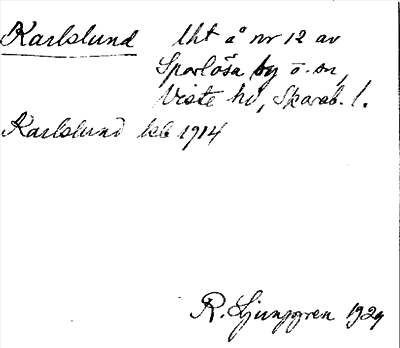 Karlslund lht å nr 12 av
Sparlösa by o. sn,
Viste hd, Skarab. l.
Karlslund kb 1914
R. Ljunggren 1929